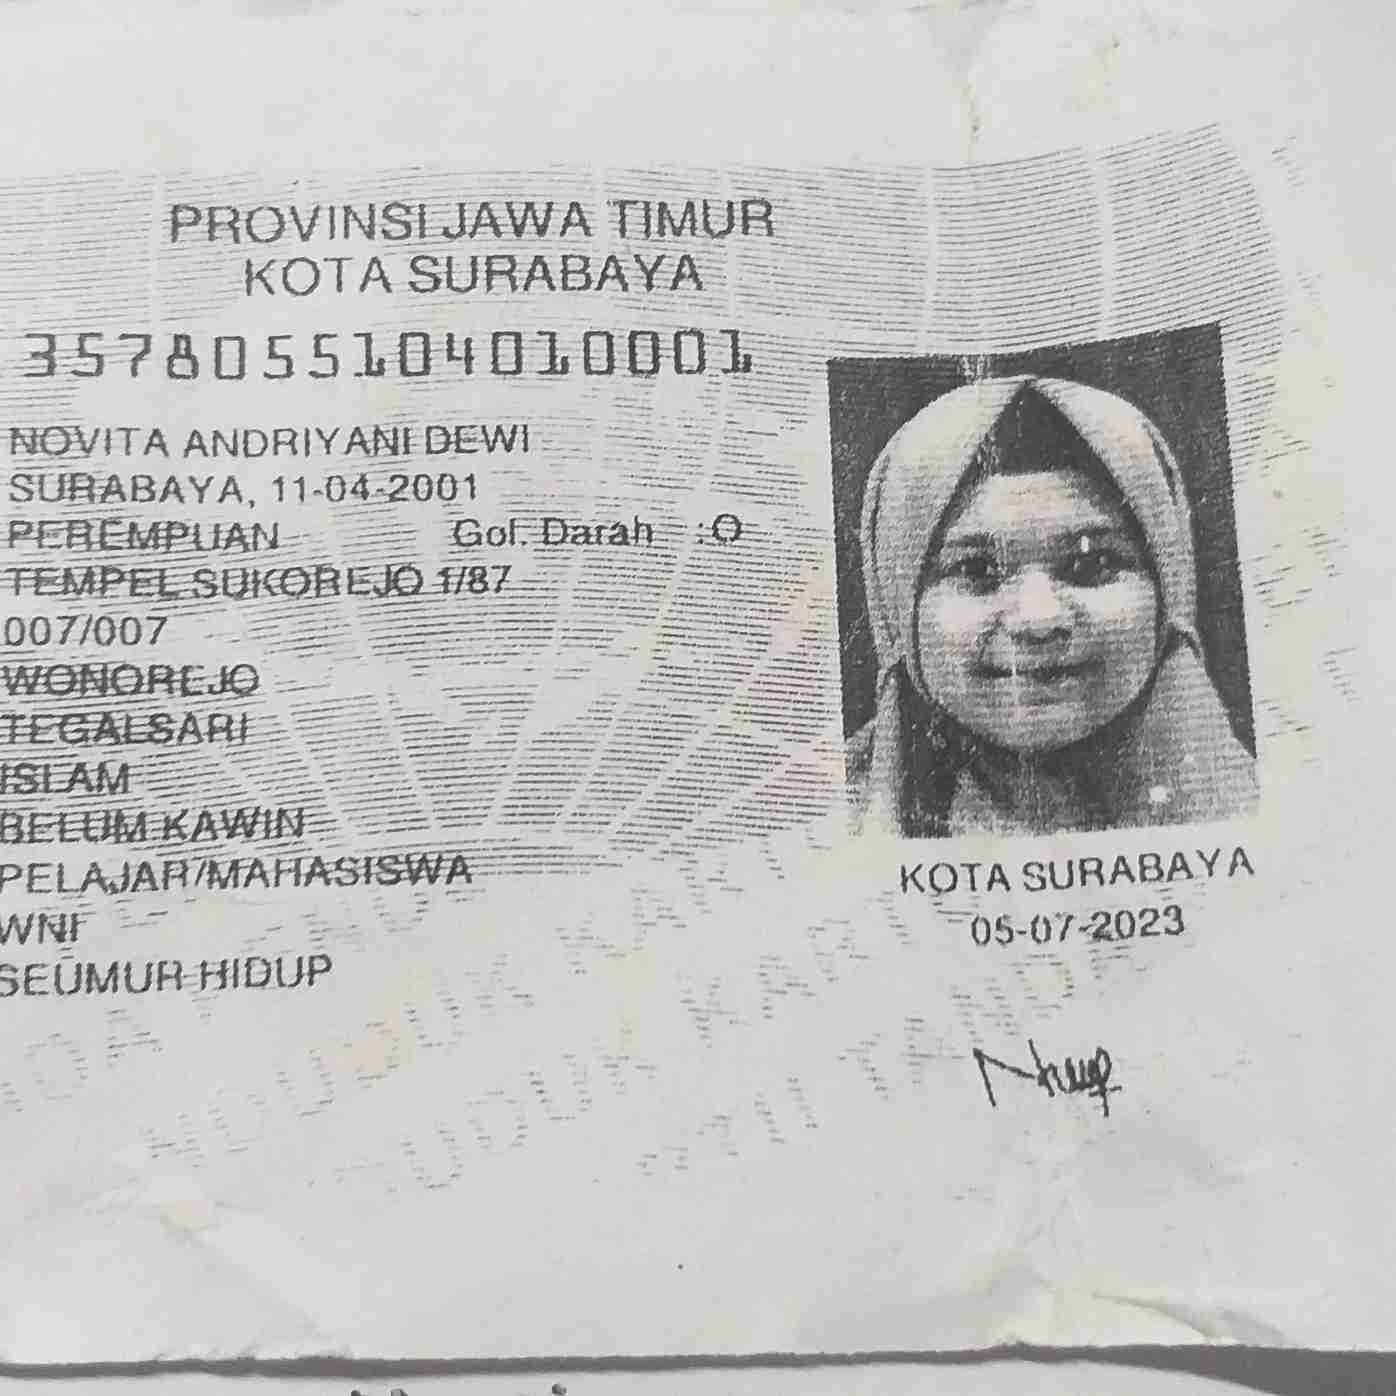 PROVINSI JAWA TIMUR
KOTA SURABAYA
3578055104010001
NOVITA ANDRIYANI DEWI
SURABAYA, 11-04-2001
PEREMPUAN Gol. Darah : O
TEMPEL SUKOREJO 1/87
007/007
WONOREJO
TEGALSARI
ISLAM
BELUM KAWIN
PELAJAR/MAHASISWA
WNI
SEUMUR HIDUP
KOTA SURABAYA
05-07-2023